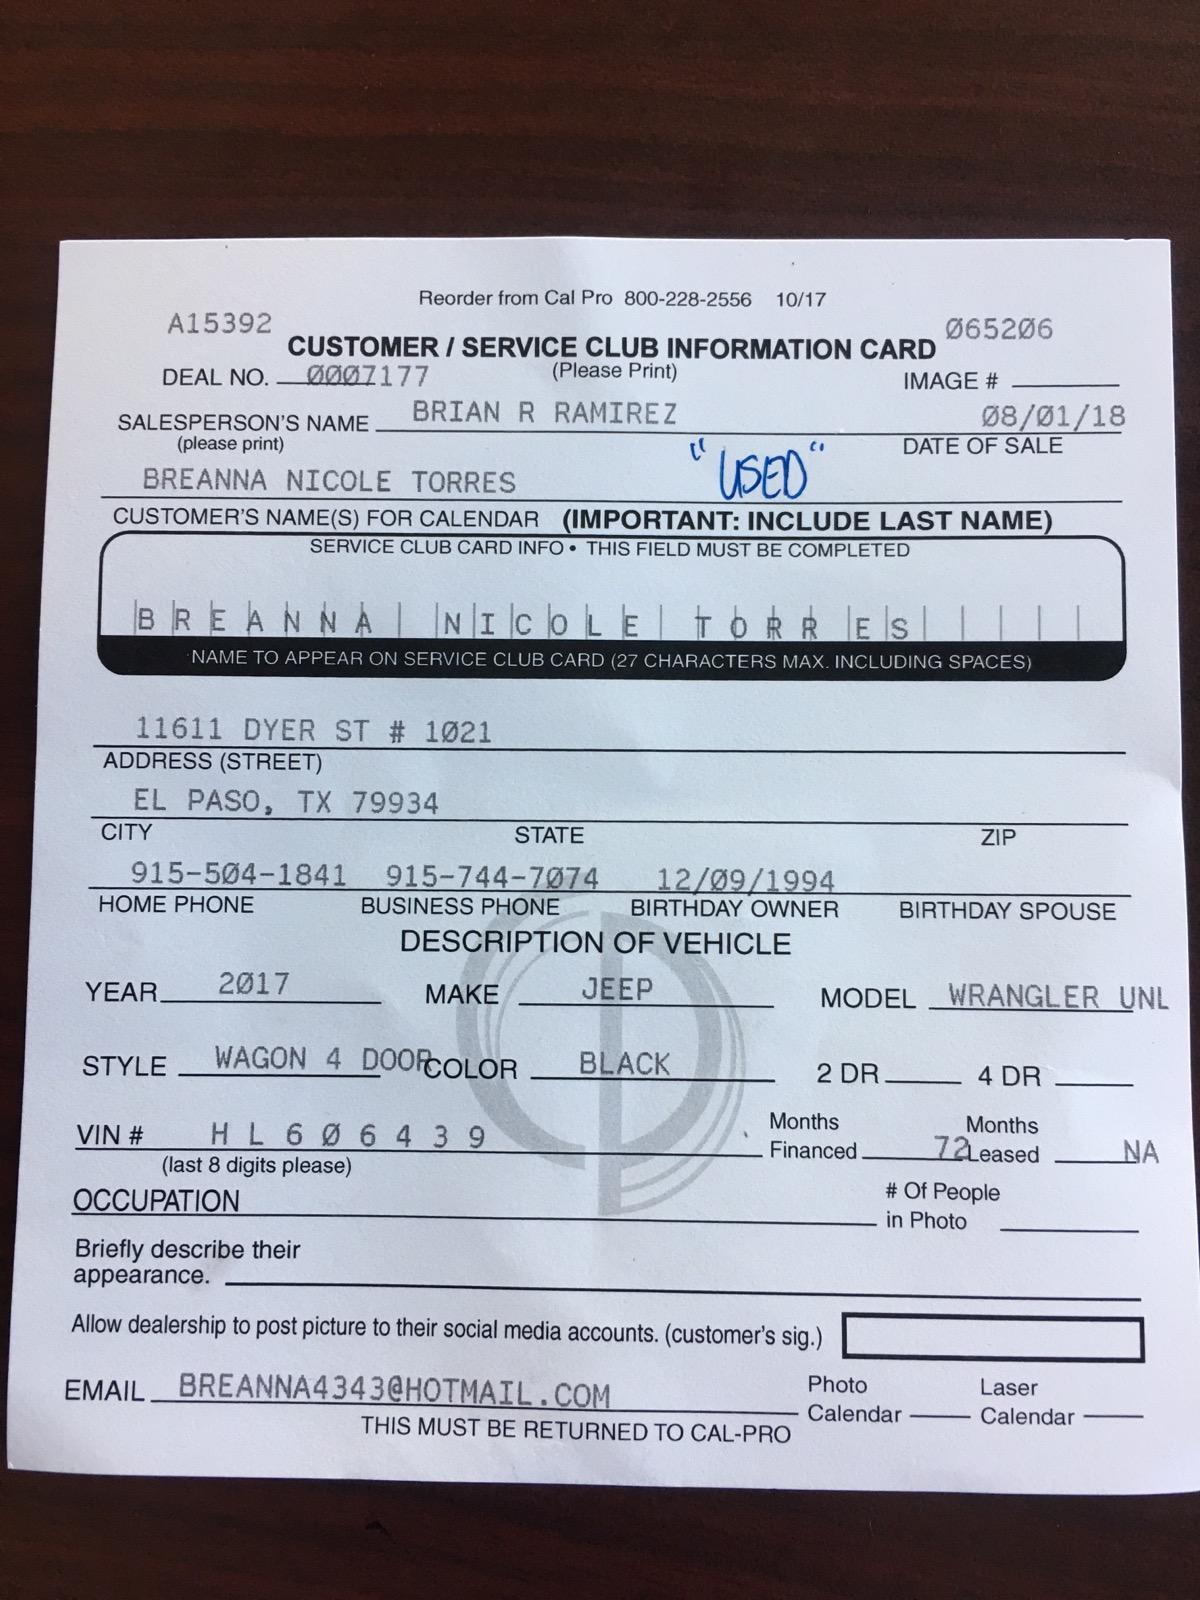 Reorder from Cal Pro 800-228-2556 10/17
A15392
065206
CUSTOMER / SERVICE CLUB INFORMATION CARD
(Please Print)
DEAL NO. 0007177
IMAGE #
SALESPERSON'S NAME BRIAN R RAMIREZ 08/01/18
(please print)
DATE OF SALE
BREANNA NICOLE TORRES "USED"
CUSTOMER'S NAME(S) FOR CALENDAR (IMPORTANT: INCLUDE LAST NAME)
SERVICE CLUB CARD INFO • THIS FIELD MUST BE COMPLETED
BREANNA NICOLE TORRES
NAME TO APPEAR ON SERVICE CLUB CARD (27 CHARACTERS MAX. INCLUDING SPACES)
11611 DYER ST # 1021
ADDRESS (STREET)
EL PASO, TX 79934
CITY STATE ZIP
915-504-1841 915-744-7074 12/09/1994
HOME PHONE BUSINESS PHONE BIRTHDAY OWNER BIRTHDAY SPOUSE
DESCRIPTION OF VEHICLE
YEAR 2017 MAKE JEEP MODEL WRANGLER UNL
STYLE WAGON 4 DOOR COLOR BLACK 2 DR 4 DR
VIN # H L 6 0 6 4 3 9 Months Financed 72 Months Leased NA
(last 8 digits please)
OCCUPATION # Of People in Photo
Briefly describe their
appearance.
Allow dealership to post picture to their social media accounts. (customer's sig.)
EMAIL BREANNA4343@HOTMAIL.COM Photo Calendar Laser Calendar
THIS MUST BE RETURNED TO CAL-PRO